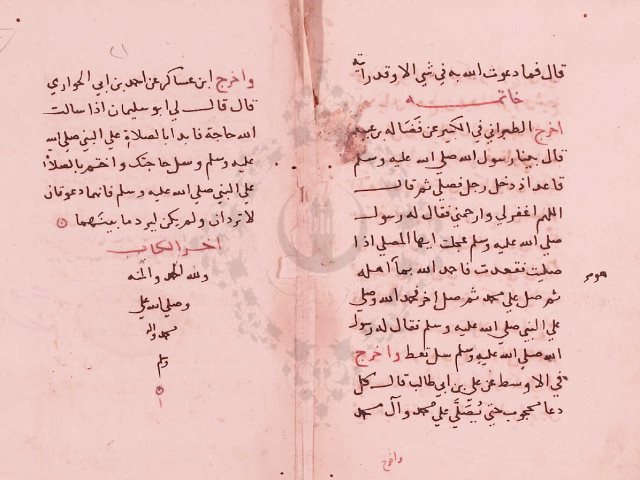 قال فما دعوت الله به في شي الا وقد رايته
خاتمه
اخرج الطبراني في الكبير عن فضاله بن عبيد
قال بينا رسول الله صلي الله عليه وسلم
قاعد اذ دخل رجل فصلي ثم قال
اللهم اغفر لي وارحمني فقال له رسول
صلي الله عليه وسلم عجلت ايها المصلي اذا
صليت فقعدت فاحمد الله بما اهله
ثم صل علي محمد ثم صل اخر فحمد الله وصلي
علي النبي صلي الله عليه وسلم فقال له رسول
الله صلي الله عليه وسلم سل تعط واخرج
في الاوسط عن علي بن ابي طالب قال كل
دعا محجوب حتي يُصَلَّي علي محمد وآل محمد
واخرج
واخرج ابن عساكر عن احمد بن ابي الحواري
قال قال لي ابو سليمان اذا سالت
الله حاجة فابدا بالصلاة علي النبي صلي الله
عليه وسلم وسل حاجتك واختم بالصلاة
علي النبي صلي الله عليه وسلم فانهما دعوتان
لا تردان ولم يكن ليرد ما بينهما
اخر الكتاب
ولله الحمد والمنه
وصلي الله علي
محمد واله
وسلم